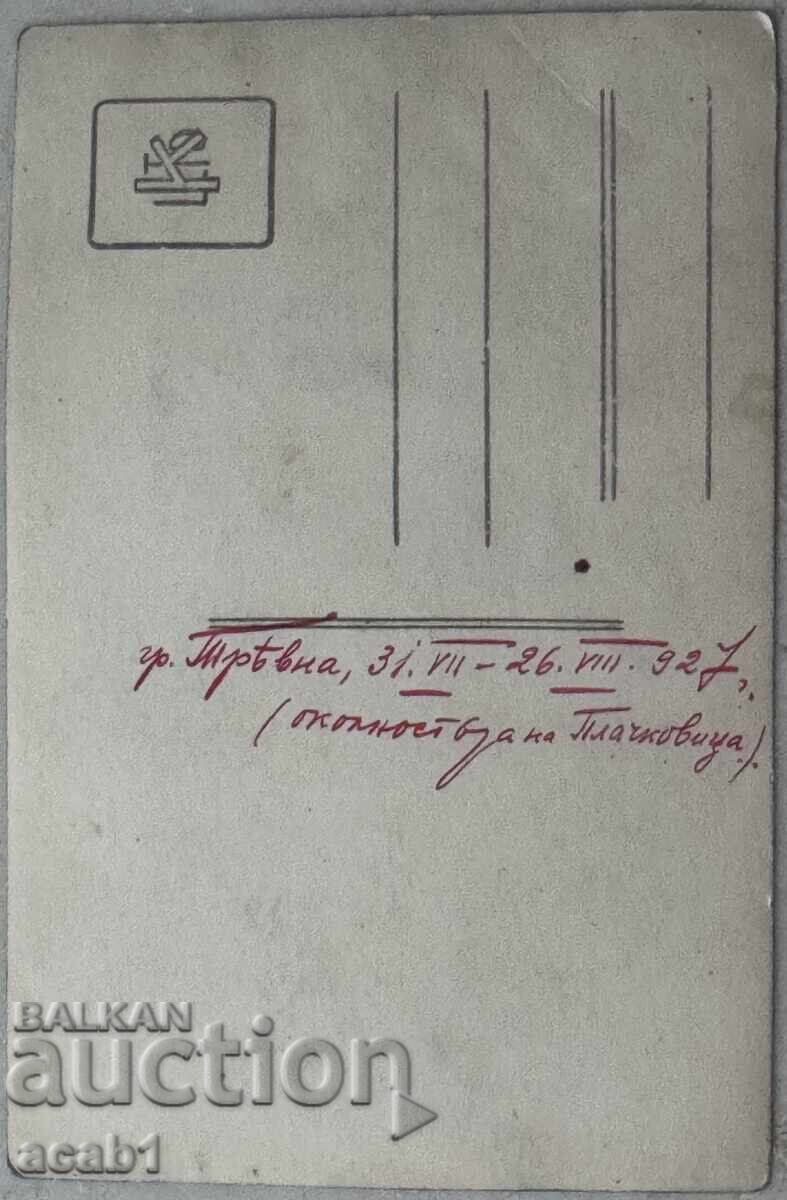 гр. Трѣвна, 31. VII – 26. VIII. 927 г.
(околностьта на Плачковица).
BALKAN
auction
acab1